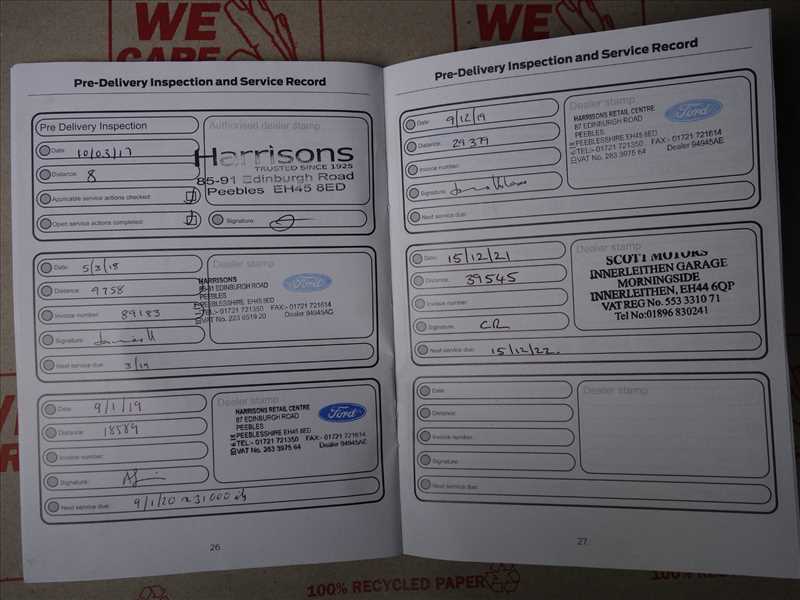 WE
CARE
WE
Pre-Delivery Inspection and Service Record
Pre Delivery Inspection
Date: 10/03/17
Distance: 8
Applicable service actions checked:
Open service actions completed:
Authorised dealer stamp
Harrisons
TRUSTED SINCE 1925
85-91 Edinburgh Road
Peebles EH45 8ED
Signature:
Date: 5/3/18
Distance: 9758
Invoice number: 89183
Signature:
Next service due: 3/19
Dealer stamp
HARRISONS
85-91 EDINBURGH ROAD
PEEBLES
PEEBLESSHIRE, EH45 8ED
TEL:- 01721 721350 FAX:- 01721 721614
VAT No. 223 6519 20 Dealer 94945AC
Ford
Date: 9/1/19
Distance: 18589
Invoice number:
Signature:
Next service due: 9/1/20 31000
Dealer stamp
HARRISONS RETAIL CENTRE
87 EDINBURGH ROAD
PEEBLES
PEEBLESSHIRE EH45 8ED
TEL:- 01721 721350 FAX:- 01721 721614
VAT No. 263 3975 64 Dealer 94945AE
Ford
26
Pre-Delivery Inspection and Service Record
Date: 9/12/19
Distance: 29379
Invoice number:
Signature:
Next service due:
Dealer stamp
HARRISONS RETAIL CENTRE
87 EDINBURGH ROAD
PEEBLES
PEEBLESSHIRE EH45 8ED
TEL:- 01721 721350 FAX:- 01721 721614
VAT No. 263 3975 64 Dealer 94945AE
Ford
Date: 15/12/21
Distance: 39545
Invoice number:
Signature: CR
Next service due: 15/12/22.
Dealer stamp
SCOTT MOTORS
INNERLEITHEN GARAGE
MORNINGSIDE
INNERLEITHEN, EH44 6QP
VAT REG No. 553 3310 71
Tel No:01896 830241
Date:
Distance:
Invoice number:
Signature:
Next service due:
Dealer stamp
27
WE
100% RECYCLED PAPER
WE